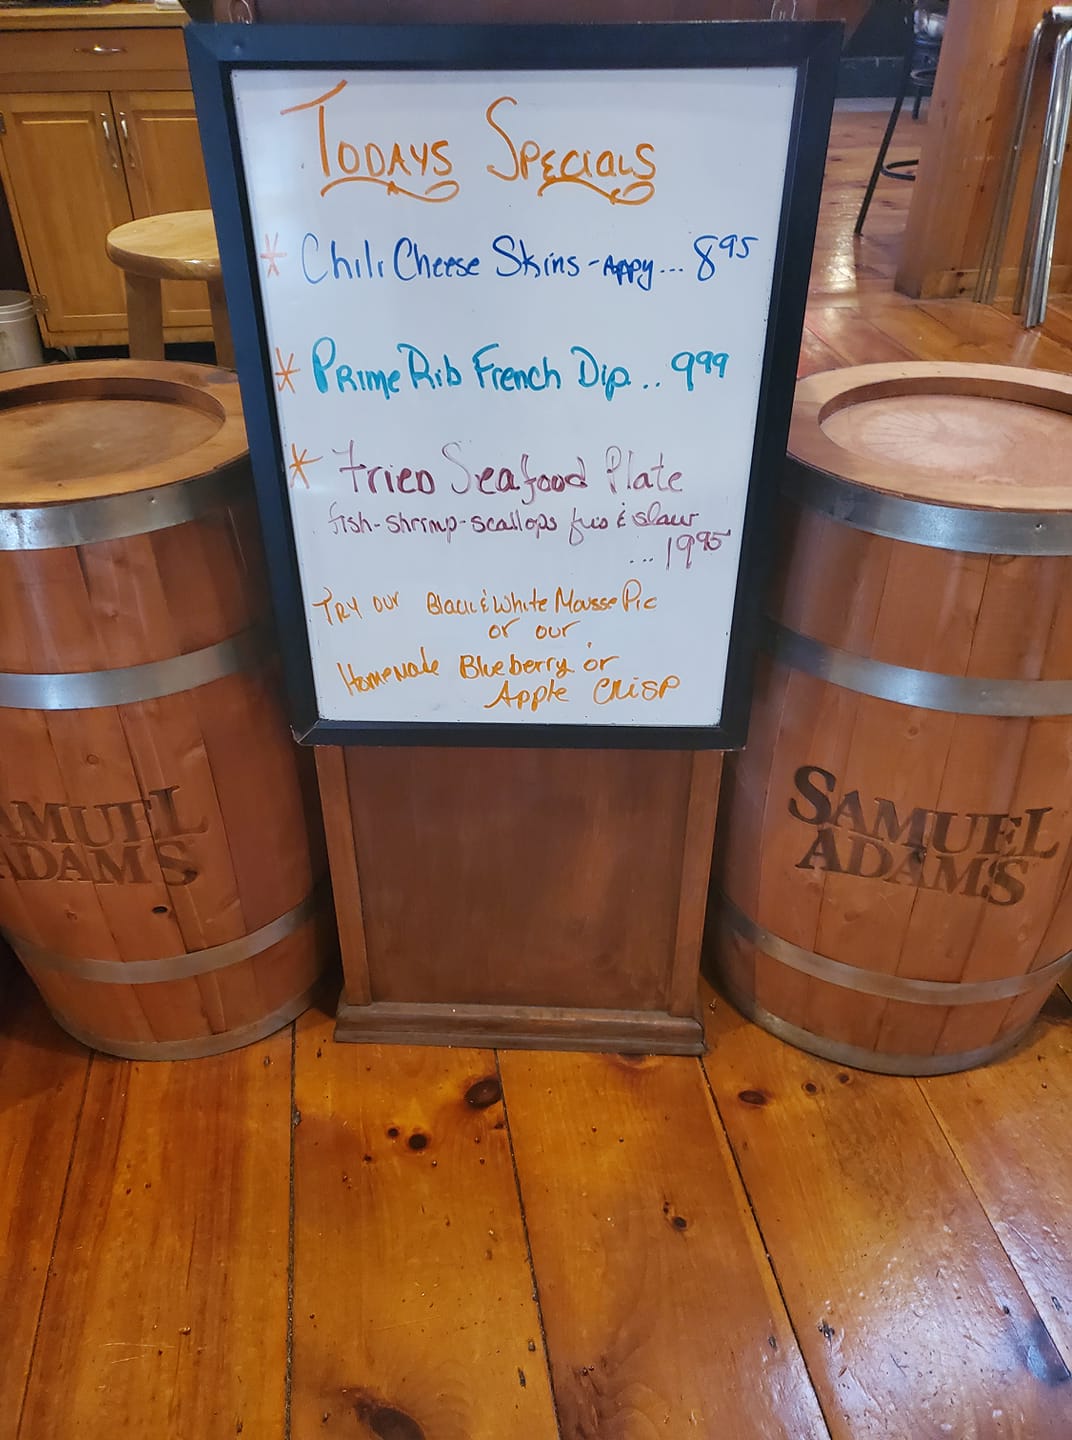 Todays Specials
* Chili Cheese Skins - Appy... 8 95
* Prime Rib French Dip... 9 99
* Fried Seafood Plate
fish-shrimp-scallops & slaw
... 19 95
Try our Black & White Mousse Pie
or our
Homemade Blueberry or
Apple Crisp
AMUEL
ADAMS
SAMUEL
ADAMS